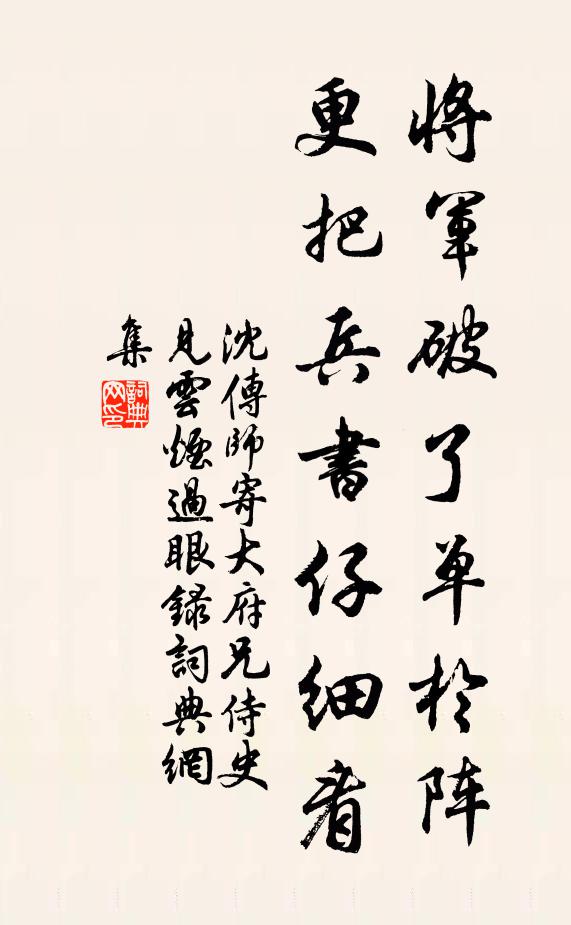 将軍破了单於阵
更把兵書仔细看
沈傳師寄大府兄侍史
見雲煙過眼録詞典網
集
詞典
网印